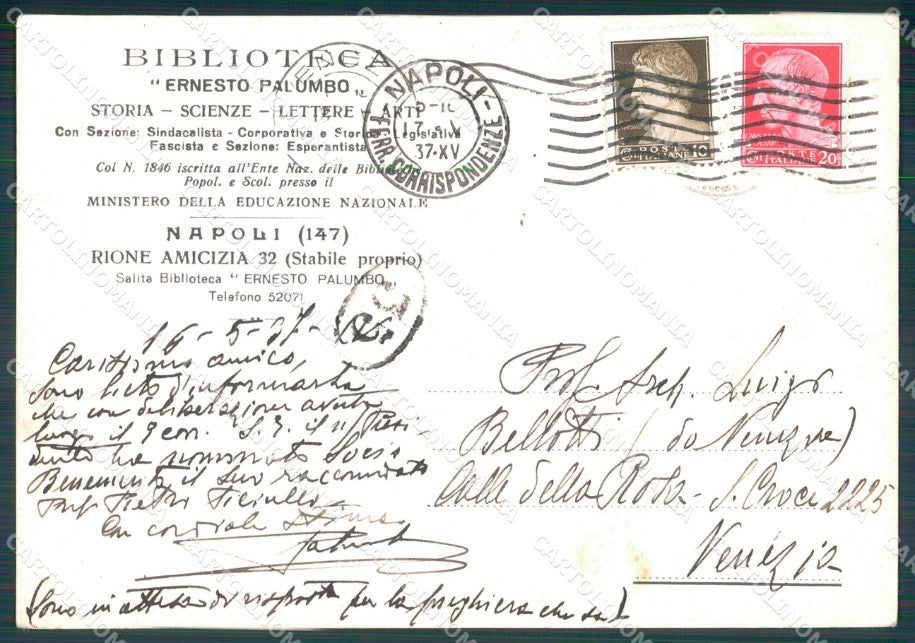 BIBLIOTECA
"ERNESTO PALUMBO"
STORIA - SCIENZE - LETTERE - ARTI
Con Sezione: Sindacalista - Corporativa e Storico Legislativa
Fascista e Sezione: Esperantista
Col N. 1846 iscritta all'Ente Naz. delle Biblioteche
Popol. e Scol. presso il
MINISTERO DELLA EDUCAZIONE NAZIONALE
NAPOLI (147)
RIONE AMICIZIA 32 (Stabile proprio)
Salita Biblioteca "ERNESTO PALUMBO"
Telefono 52071
NAPOLI
CORRISPONDENZE
37-XV
POSTE ITALIANE 10
POSTE ITALIANE 20
32
16-5-37-XV
Carissimo amico,
sono lieto d'informarla
che con deliberazione avuta
luogo il 9 corr. S. E. il n/ Presi-
dente ha nominato Socio
Benemerito il suo raccomandato
Prof. Pietro
Con cordiale stima
Palumbo
(Sono in attesa di risposta per la preghiera che sa)
Prof. Arch. Luigi
Bellotti (da Venezia)
Calle della Rosa - S. Croce 2225
Venezia
CARTOLINOMANIA